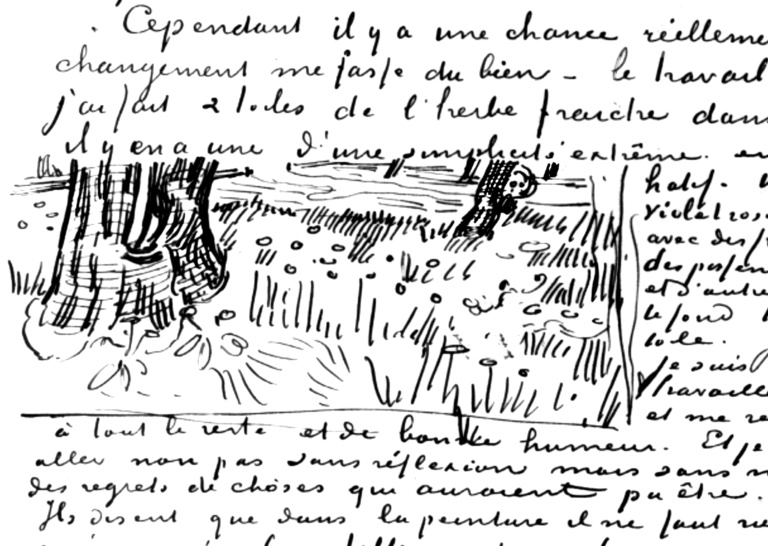 Cependant il y a une chance réelleme
changement me fasse du bien – le travail
j'ai fait 2 toiles de l'herbe fraiche dans
il y en a une d'une simplicité extrême. 
violet ros
avec des
et d'autre
le fond
toile.
Je suis
travaille
et me re
à tout le reste et de bonne humeur. Et je
aller non pas sans réflexion mais sans
des regrets de choses qui auraient pu être.
Ils disent que dans la peinture il ne faut